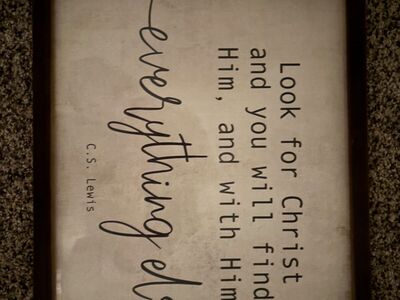 Look for Christ
and you will find
Him, and with Him
everything
C.S. Lewis